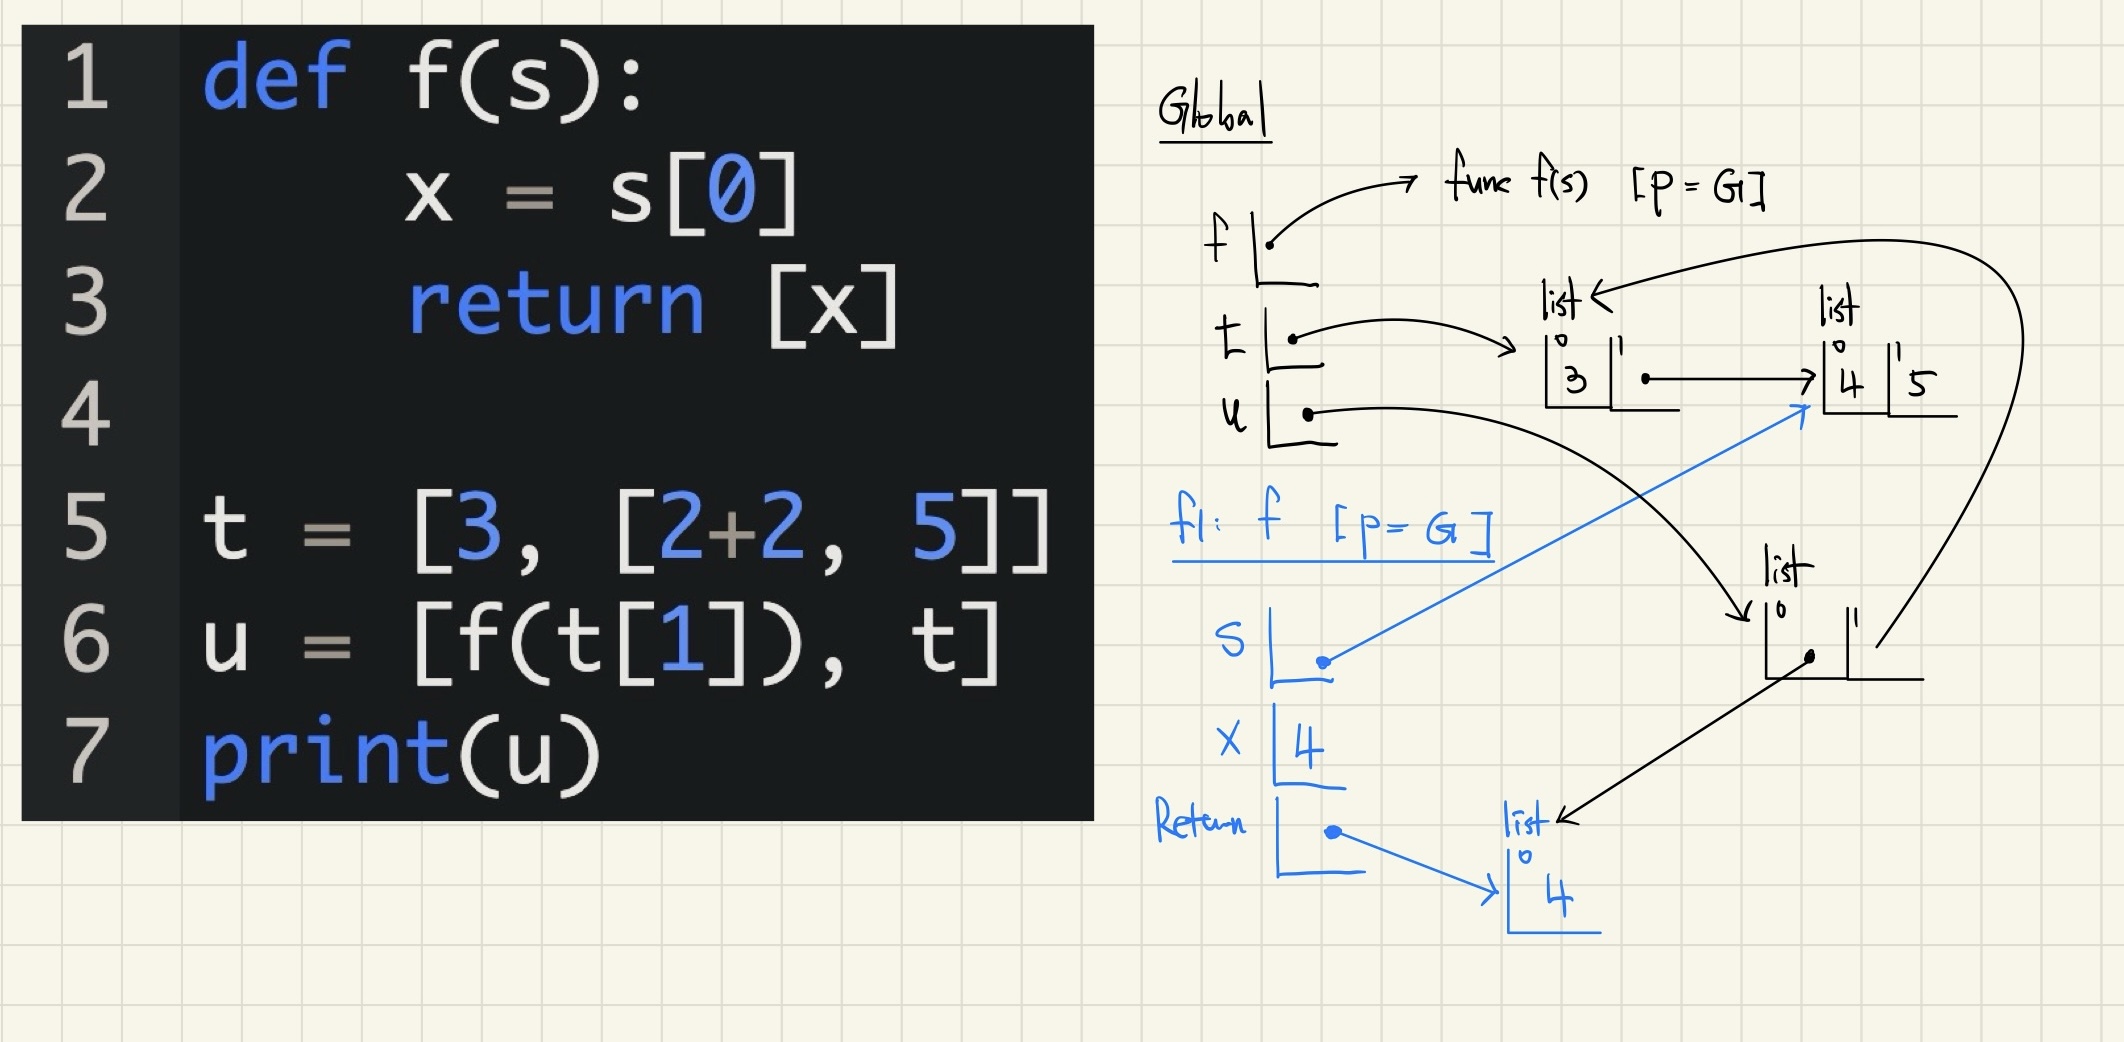 1 def f(s):
2 x = s[0]
3 return [x]
4
5 t = [3, [2+2, 5]]
6 u = [f(t[1]), t]
7 print(u)
Global
f func f(s) [p = G]
t list 0 3 1 list 0 4 1 5
u list 0 1
f1: f [p = G]
s
x 4
Return list 0 4